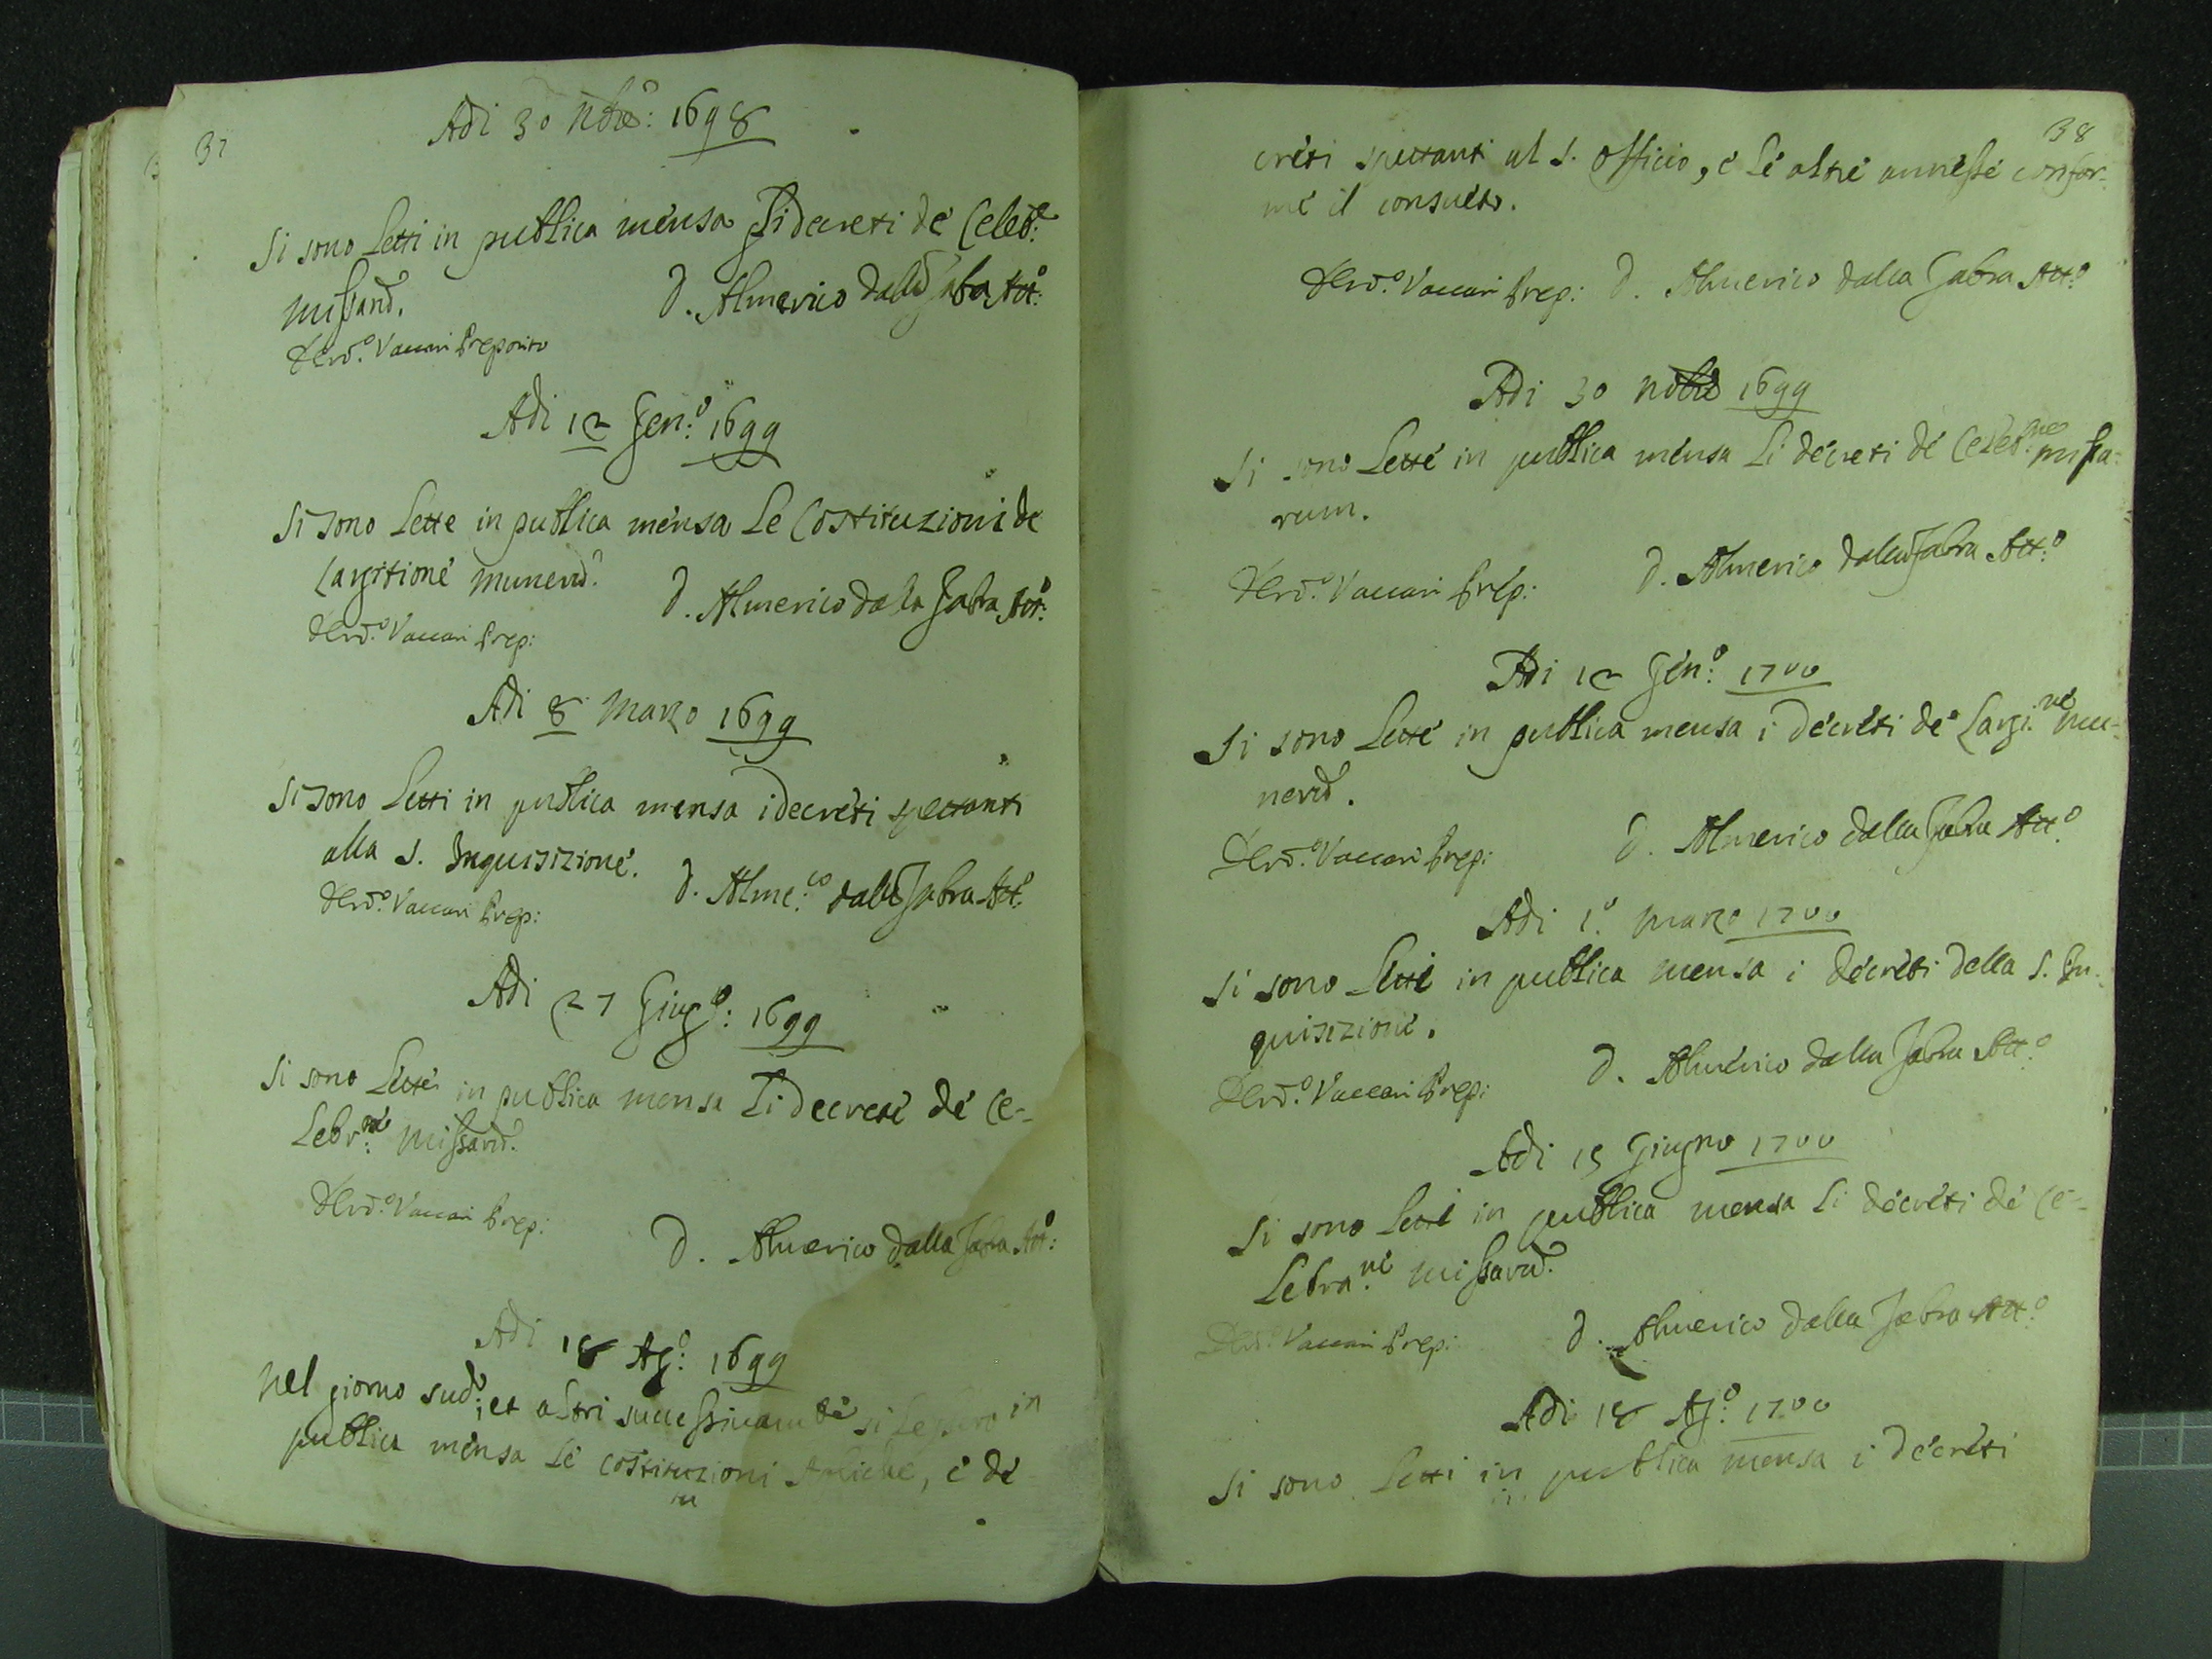 37
Adi 30 Nbre: 1698
Si sono Letti in publica mensa Li decreti de Celeb:e
missard.
D. Almerico dalla fabra Att:o
Ferd.o Vaccari Preposito
Adi 12 Gen:o 1699
Si sono Lette in publica mensa Le Costituzioni de
Largitione munerd.
D. Almerico dala fabra Att:o
Ferd.o Vaccari Prep:
Adi 8 Marzo 1699
Si sono Letti in publica mensa i decreti spectanti
alla S. Inquisizione.
D. Alme:co dalla fabra Att:o
Ferd.o Vaccari Prep:
Adi 27 Giug:o 1699
Si sono Letti in publica mensa Li decreti de Ce-
Lebr:ne Missard.
Ferd.o Vaccari Prep:
D. Almerico dalla fabra Att:o
Adi 18 Ag:o 1699
Nel giorno sud:o, et altri successivam.te si Lessero in
publica mensa Le costituzioni Apliche, e de
38
creti spectanti al S. Officio, e Le altre annesse confor-
me il consueto.
Ferd.o Vaccari Prep: D. Almerico dalla fabra Att:o
Adi 30 Nobre 1699
Si sono Lette in publica mensa Li decreti de Celeb:ne missa-
rum.
D. Almerico dalla fabra Att:o
Ferd.o Vaccari Prep:
Adi 12 Gen:o 1700
Si sono Lette in publica mensa i decreti de Largi:ne mu-
nerd.
D. Almerico dalla fabra Att:o
Ferd.o Vaccari Prep:
Adi 1.o Marzo 1700
Si sono Letti in publica mensa i decreti della S. In-
quisizione.
D. Almerico dalla fabra Att:o
Ferd.o Vaccari Prep:
Adi 15 Giugno 1700
Si sono Letti in publica mensa Li decreti de Ce-
Lebra:ne Missard.
D. Almerico dalla fabra Att:o
Ferd.o Vaccari Prep:
Adi 18 Ag:o 1700
Si sono Letti in publica mensa i decreti